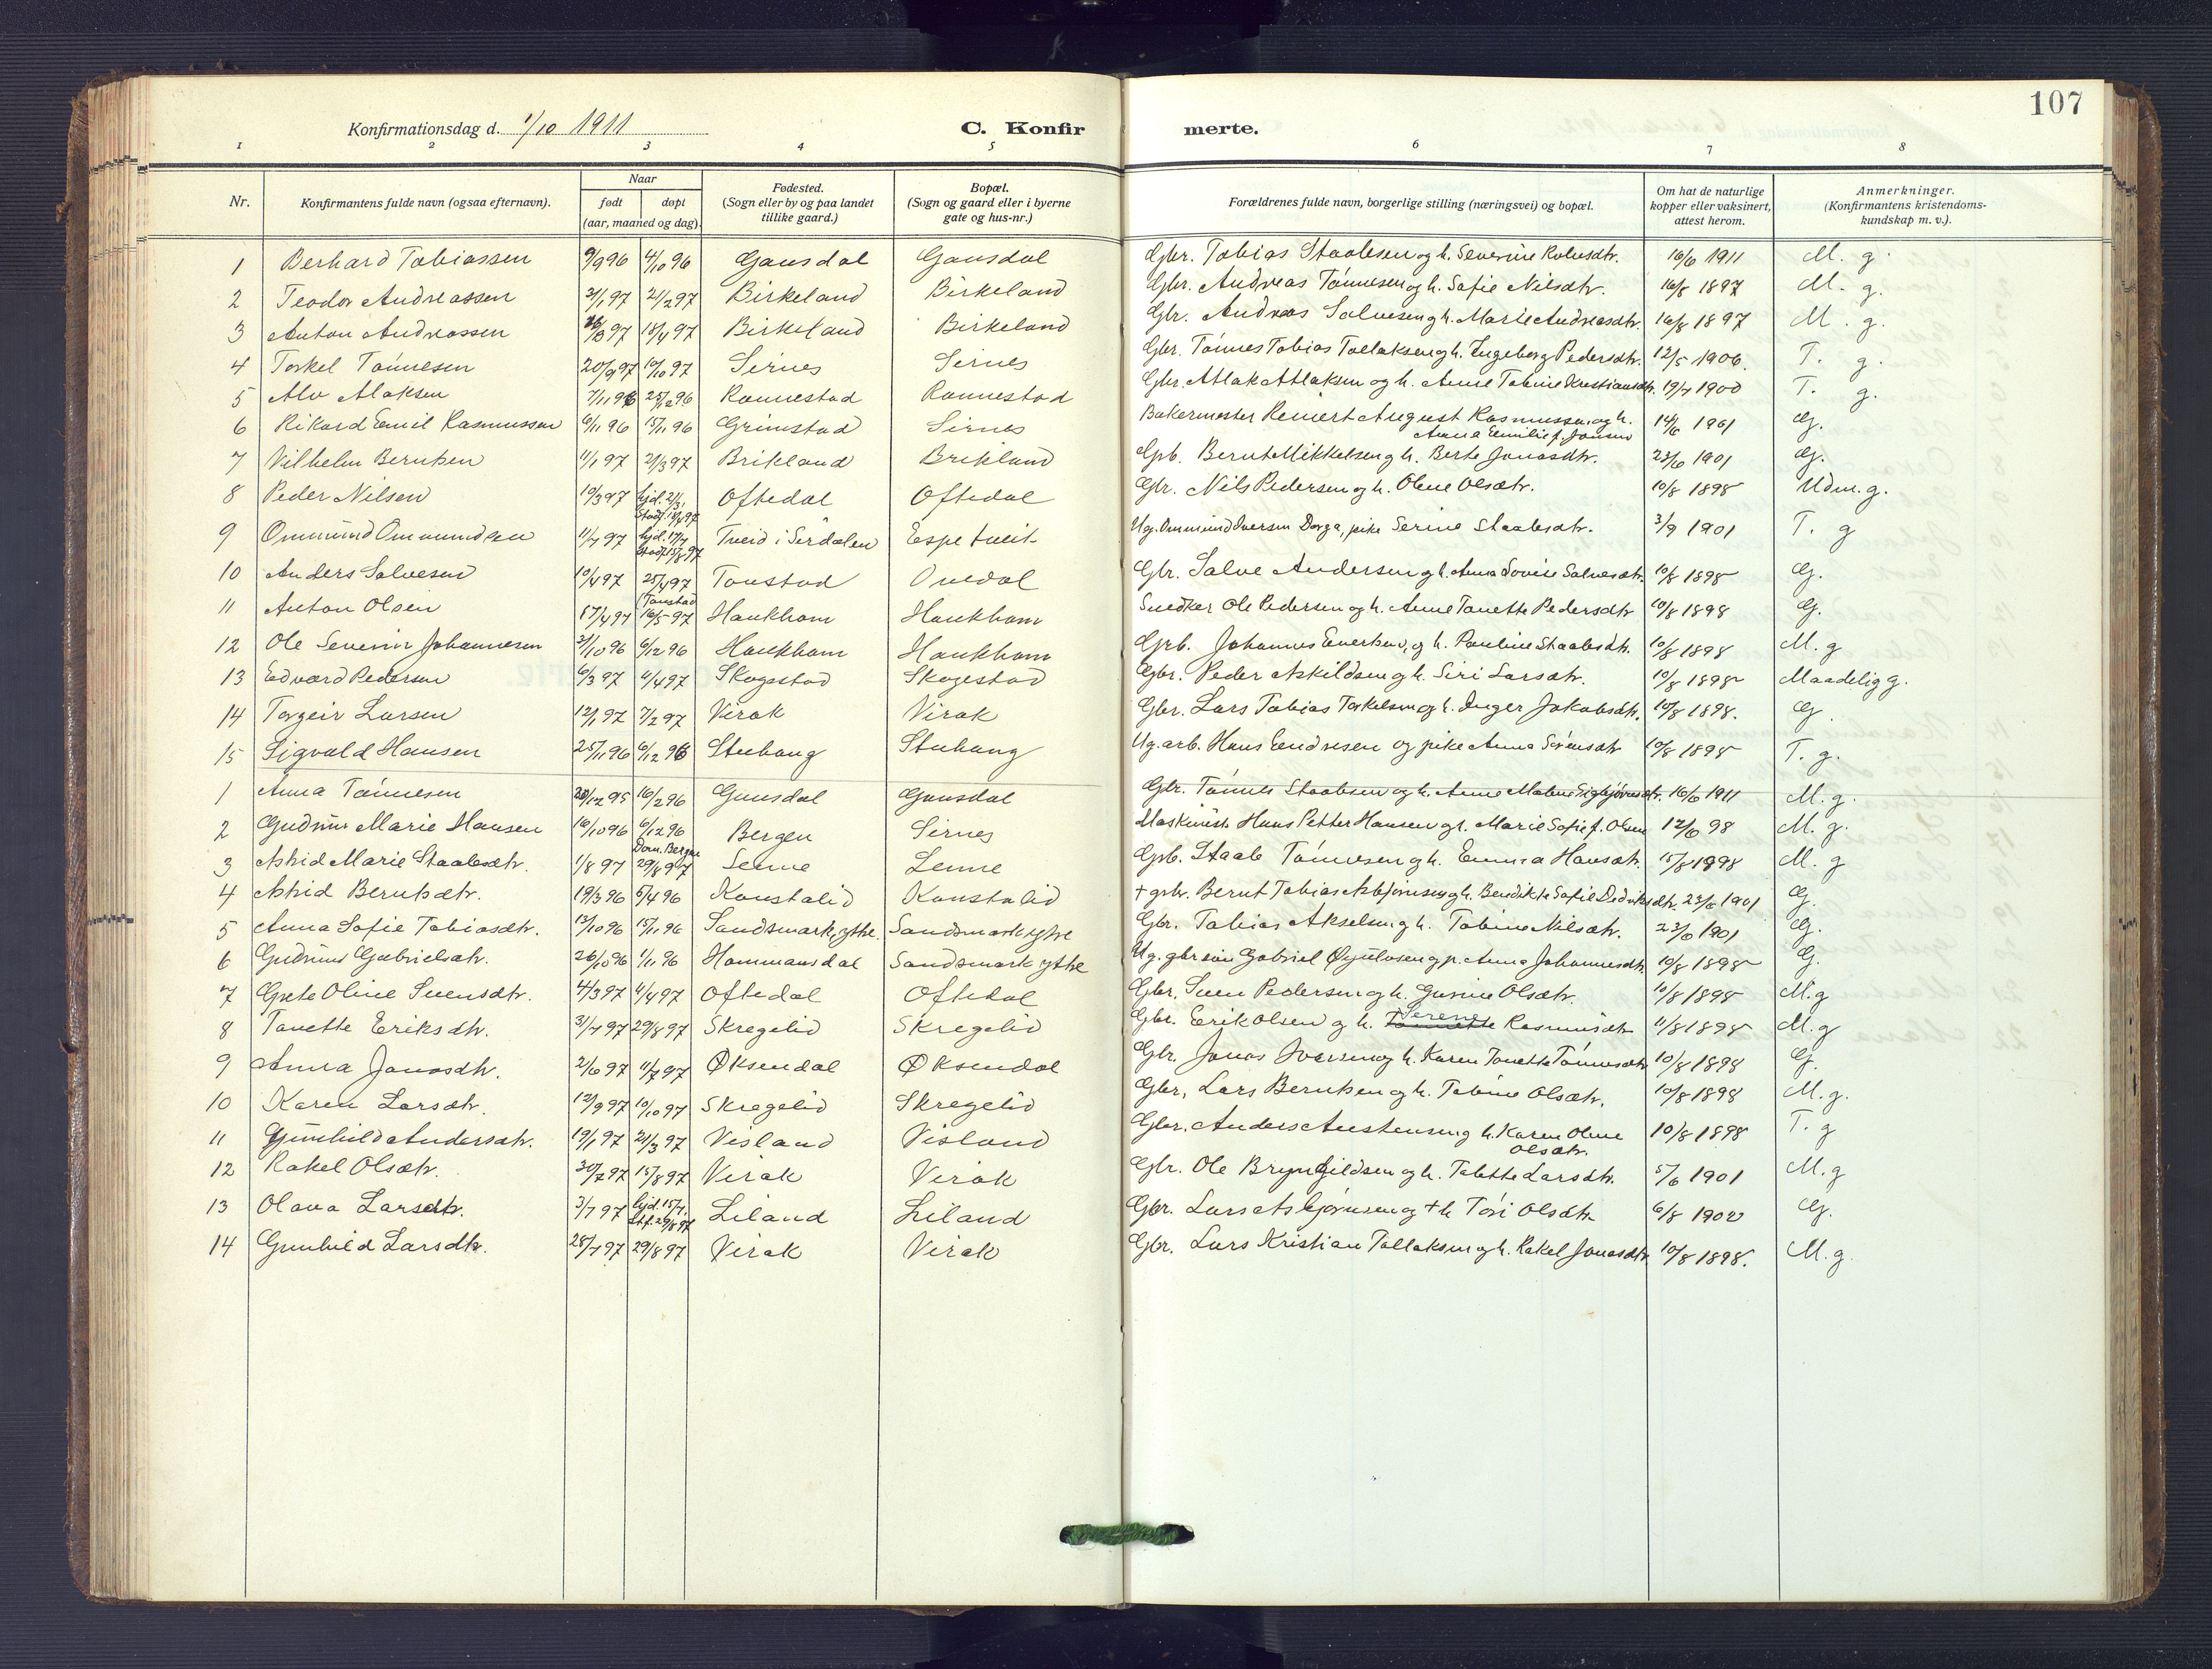 107
Konfirmationsdag d. 1/10 1911 C. Konfir merte.
1 2 3 4 5 6 7 8
Nr. Konfirmantens fulde navn (ogsaa efternavn). Naar født døpt (aar, maaned og dag). Fødested. (Sogn eller by og paa landet tillike gaard.) Bopæl. (Sogn og gaard eller i byerne gate og hus-nr.) Forældrenes fulde navn, borgerlige stilling (næringsvei) og bopæl. Om hat de naturlige kopper eller vaksinert, attest herom. Anmerkninger. (Konfirmantens kristendoms-kundskap m. v.).
1 Berhard Tobiassen 9/9 96 4/10 96 Gausdal Gausdal Gbr. Tobias Staalesen og h. Severine 16/6 1911 M. g.
2 Teodor Andreassen 31/1 97 21/2 97 Birkeland Birkeland Gbr. Andreas Tønnesen og h. Sofie Nilsdtr. 16/8 1897 M. g.
3 Anton Andreassen 97 18/4 97 Birkeland Birkeland Gbr. Andreas Salvesen og h. Marie Andreasdtr. 16/8 1897 M. g.
4 Torkel Tønnesen 20/9 97 10/10 97 Sirnes Sirnes Gbr. Tønnes Tobias Tollaksen og h. Ingeborg Pedersdtr. 12/5 1906. T. g.
5 Alv Alaksen 7/11 96 25/12 96 Rannestad Rannestad Gbr. Atlak Atlaksen og h. Anne Tobine Kristiansdtr. 19/7 1900 T. g.
6 Rikard Emil Rasmussen 6/11 96 15/11 96 Grimstad Sirnes Bakermester Reinert August Rasmussen og h. 14/6 1901 G.
Anna Emilie f. Jonsen
7 Vilhelm Berntsen 11/1 97 21/3 97 Brikland Brikland Grb. Bernt Mikkelsen og h. Berte Jonasdtr. 23/6 1901 G.
8 Peder Nilsen 10/3 97 hjd. 21/3, Stadf. 18/4 97 Oftedal Oftedal Gbr. Nils Pedersen og h. Oline Olsdtr. 10/8 1898 Udm. g.
9 Ommund Ommundsen 11/7 97 hjd. 17/7 Stadf. 15/8 97 Tveid i Sirdalen Espetveit Ug. Ommund Iversen Dorga, pike Serine Staalesdtr. 3/9 1901 T. g
10 Anders Salvesen 10/4 97 25/4 97 Tonstad Ouedal Gbr. Salve Andersen og h. Anna Lovise Salvesdtr. 10/8 1898 G.
(Tonstad
11 Anton Olsen /4 97 16/5 97 Haukhom Haukhom Snedker Ole Pedersen og h. Anne Tonette Pedersdtr 10/8 1898 G.
12 Ole Severin Johannesen 31/10 96 6/12 96 Haukhom Haukhom Grb. Johannes Evertsen, og h. Pauline Staalesdtr. 10/8 1898 M. g
13 Edvard Pedersen 6/3 97 4/4 97 Skogestad Skogestad Gbr. Peder Askildsen og h. Siri Larsdtr. 10/8 1898 Maadelig g.
14 Torgeir Larsen 12/1 97 7/2 97 Virak Virak Gbr. Lars Tobias Torkelsen og h. Inger Jakobsdtr. 10/8 1898. G.
15 Sigvald Hansen 25/11 96 6/12 96 Stuhaug Stuhaug Ug. arb. Hans Endresen og pike Anna Sørensdtr 10/8 1898 T. g.
1 Anna Tønnesen 20/12 95 16/2 96 Gausdal Gausdal Gbr. Tønnes Staalesen og h. Anne Malene Sigbjørnsdtr. 16/6 1911 M. g.
2 Gudrun Marie Hansen 16/10 96 6/12 96 Bergen Sirnes Maskinist Hans Petter Hansen og h. Marie Sofie f. Olsen 12/6 98 M. g.
Dom. Bergen
3 Astrid Marie Staalesdtr. 1/8 97 29/8 97 Lenne Lenne Grb. Staale Tønnesen og h. Emma Hansdtr. 15/8 1898 M. g
4 Astrid Berntsdtr. 19/3 96 5/4 96 Konstalid Konstalid + grbr. Bernt Tobias Asbjørnsen og h. Bendikte Sofie Dediksdtr. 23/6 1901 G.
5 Anna Sofie Tobiasdtr. 13/10 96 15/11 96 Sandsmark, ytre. Sandsmark ytre Gbr. Tobias Akselsen og h. Tobine Nilsdtr. 23/6 1901 G.
6 Gudrun Gabrielsdtr. 26/10 96 1/11 96 Hommansdal Sandsmark ytre Ug. gbr søn Gabriel Øyulvsen og p. Anna Johannesdtr 10/8 1898 G.
7 Grete Oline Svensdtr. 4/3 97 4/4 97 Oftedal Oftedal Gbr. Sven Pedersen og h. Gurine Olsdtr. 10/8 1898 M. g
8 Tonette Eriksdtr. 3/7 97 29/8 97 Skregelid Skregelid Gbr. Erik Olsen og h. Tonette Serene Rasmusdtr 11/8 1898 M. g
9 Anna Jonasdtr. 2/6 97 11/7 97 Øksendal Øksendal Gbr. Jonas Iversen og h. Karen Tonette Tønnesdtr 10/8 1898 G.
10 Karen Larsdtr. 12/9 97 10/10 97 Skregelid Skregelid Gbr. Lars Berntsen og h. Tobine Olsdtr. 10/8 1898 M. g.
11 Gunhild Andersdtr. 19/1 97 21/3 97 Visland Visland Gbr. Anders Austensen og h. Karen Oline 10/8 1898 T. g
Olsdtr.
12 Rakel Olsdtr. 30/7 97 15/8 97 Virak Virak Gbr. Ole Brynjildsen og h. Talette Larsdtr. 5/6 1901 M. g
13 Olava Larsdtr. 3/7 97 hjd. 15/7, Stf. 29/8 97 Liland Liland Gbr. Lars Asbjørnsen og + h. Tori Olsdtr. 6/8 1902 G.
14 Gunhild Larsdtr. 28/7 97 29/8 97 Virak Virak Gbr. Lars Kristian Tollaksen og h. Rakel Jonasdtr. 10/8 1898. M. g.